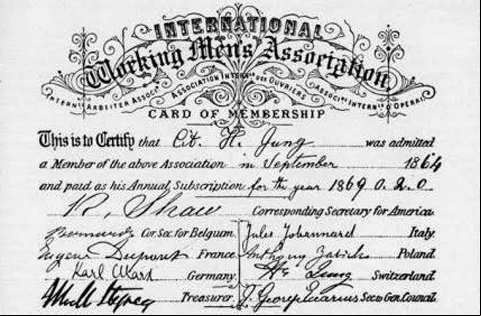 INTERNATIONAL
Working Men's Association
INTERN. ARBEITER ASSOC. ASSOCIATION INTERN. DES OUVRIERS ASSOC. INTERN. D'OPERAI
CARD OF MEMBERSHIP
This is to Certify that Cit. H. Jung was admitted
a Member of the above Association in September 1864
and paid as his Annual Subscription for the year 1869 0. 2. 0
R. Shaw Corresponding Secretary for America.
Bernard Cor. Sec. for Belgium. Jules Johannard Italy.
Eugene Dupont France. Anthony Zabicki Poland.
Karl Marx Germany. H. Jung Switzerland.
Treasurer. J. George Eccarius Sec. to Gen. Council.